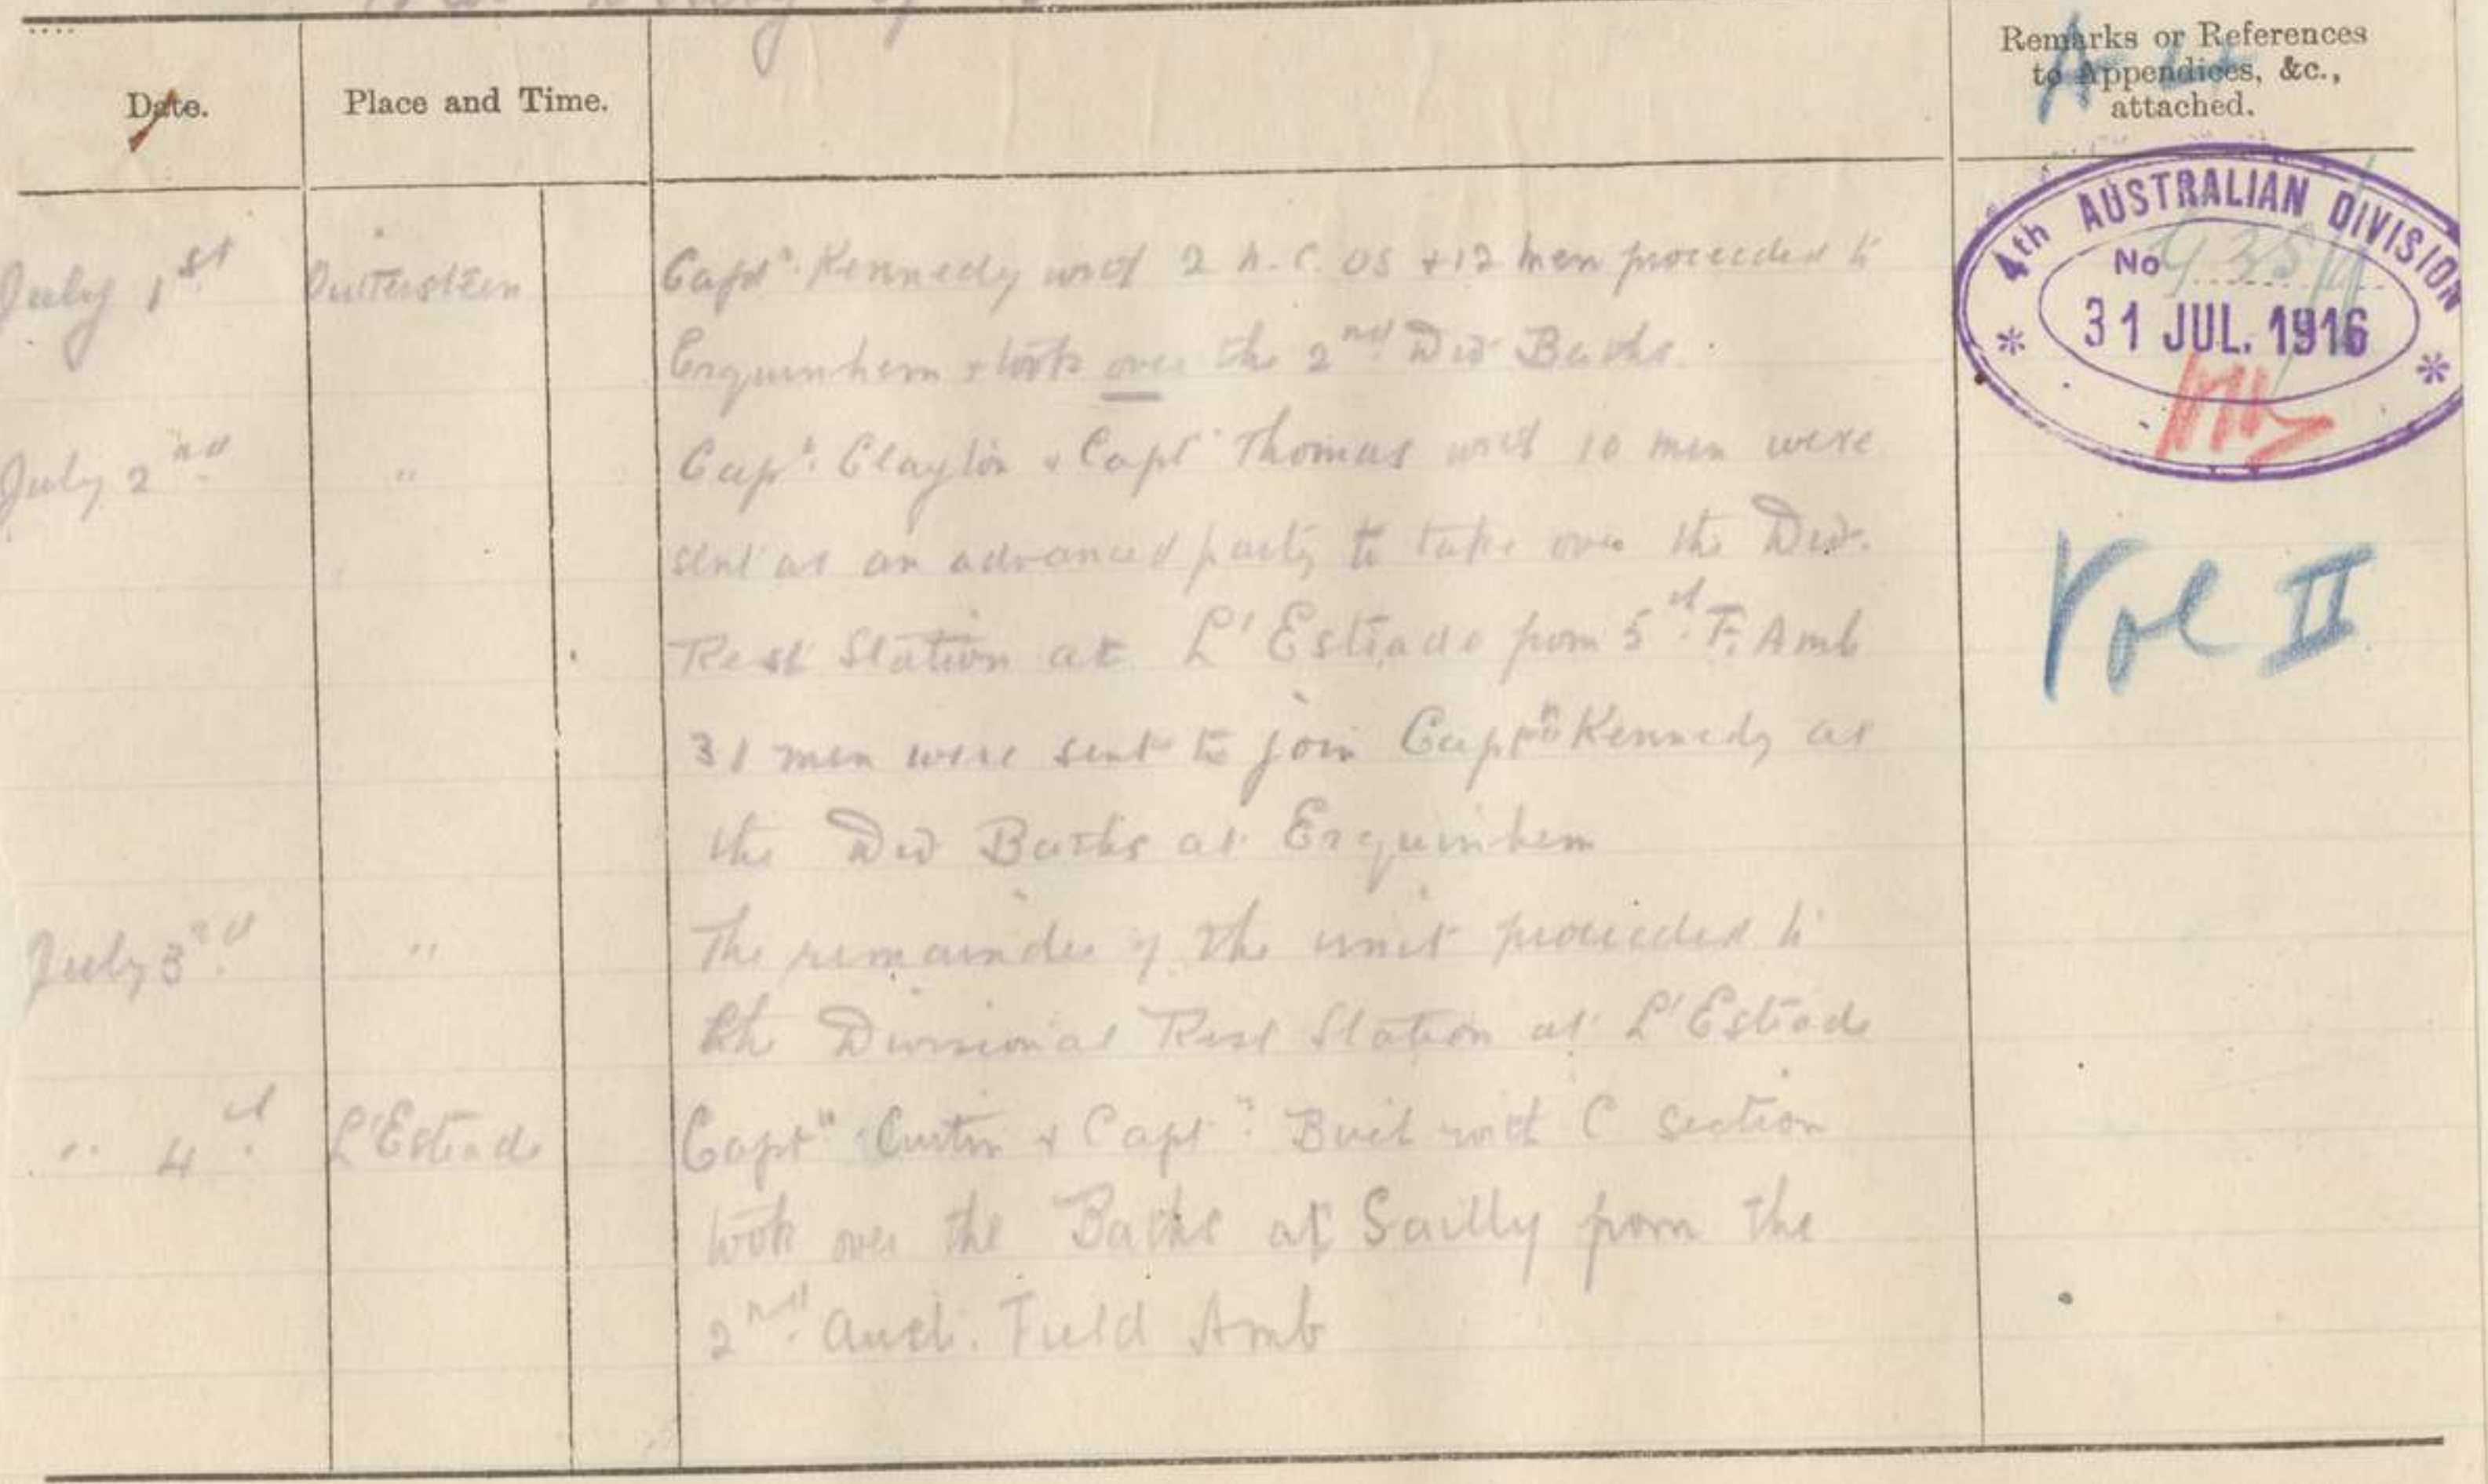 War Diary of
Date.
Place and Time.
Remarks or References
to Appendices, &c.,
attached.
4th AUSTRALIAN DIVISION
No
31 JUL. 1916
Vol II
July 1st Outtersteen Captn. Kennedy with 2 N.C.Os + 12 men proceeded to
Erquinhem & took over the 2nd Div Baths.
July 2nd " Capt. Clayton & Capt Thomas with 10 men were
sent as an advanced party to take over the Div.
Rest Station at L'Estrade from 5th F. Amb
31 men were sent to join Captn Kennedy at
the Div Baths at Erquinhem
July 3rd " The remainder of the unit proceeded to
the Divisional Rest Station at L'Estrade
" 4th L'Estrade Captn Curtin & Captn. with C section
took over the Baths at Sailly from the
2nd Aust. Field Amb